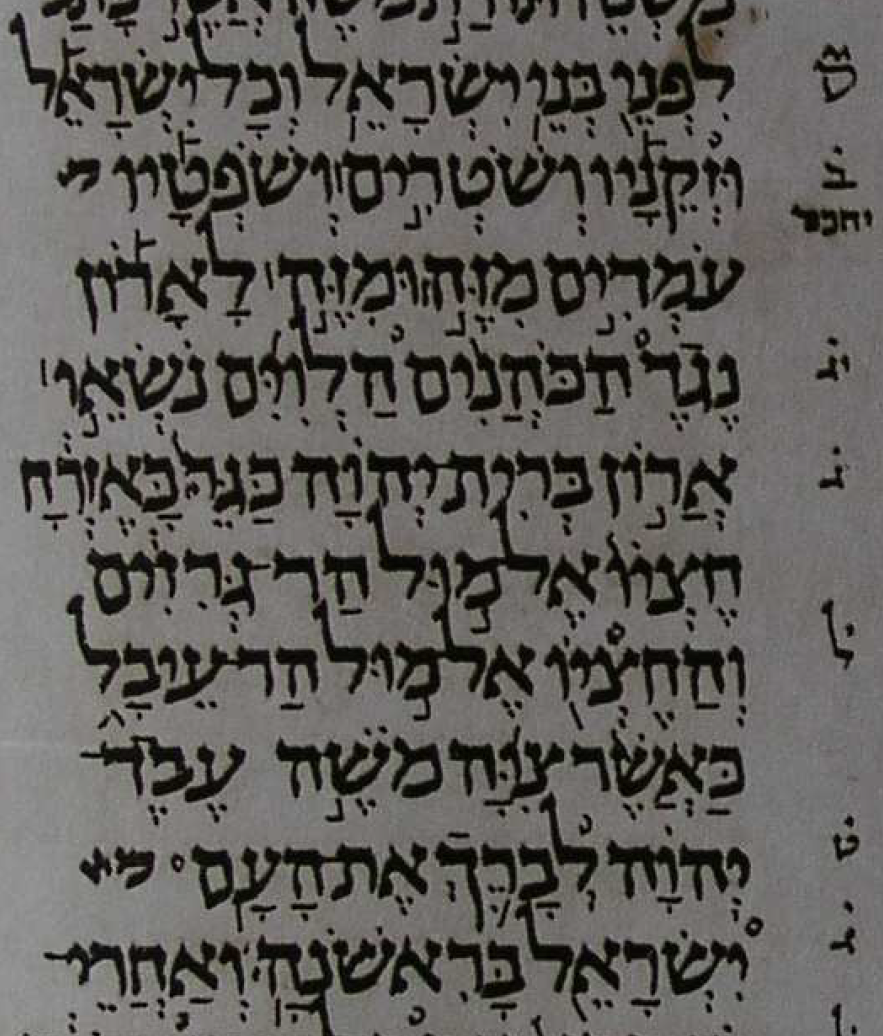 לִפְנֵי בְּנֵי יִשְׂרָאֵל׃ וְכׇל יִשְׂרָאֵל
וּזְקֵנָיו וְשֹׁטְרִים ׀ וְשֹׁפְטָיו
עֹמְדִים מִזֶּה וּמִזֶּה ׀ לָאָרוֹן
נֶגֶד הַכֹּהֲנִים הַלְוִיִּם נֹשְׂאֵי ׀
אֲרוֹן בְּרִית יְהוָה כַּגֵּר כָּאֶזְרָח
חֶצְיוֹ אֶל מוּל הַר גְּרִזִים
וְהַחֶצְיוֹ אֶל מוּל הַר עֵיבָל
כַּאֲשֶׁר צִוָּה מֹשֶׁה עֶבֶד
יְהוָה לְבָרֵךְ אֶת הָעָם
יִשְׂרָאֵל בָּרִאשֹׁנָה׃ וְאַחֲרֵי